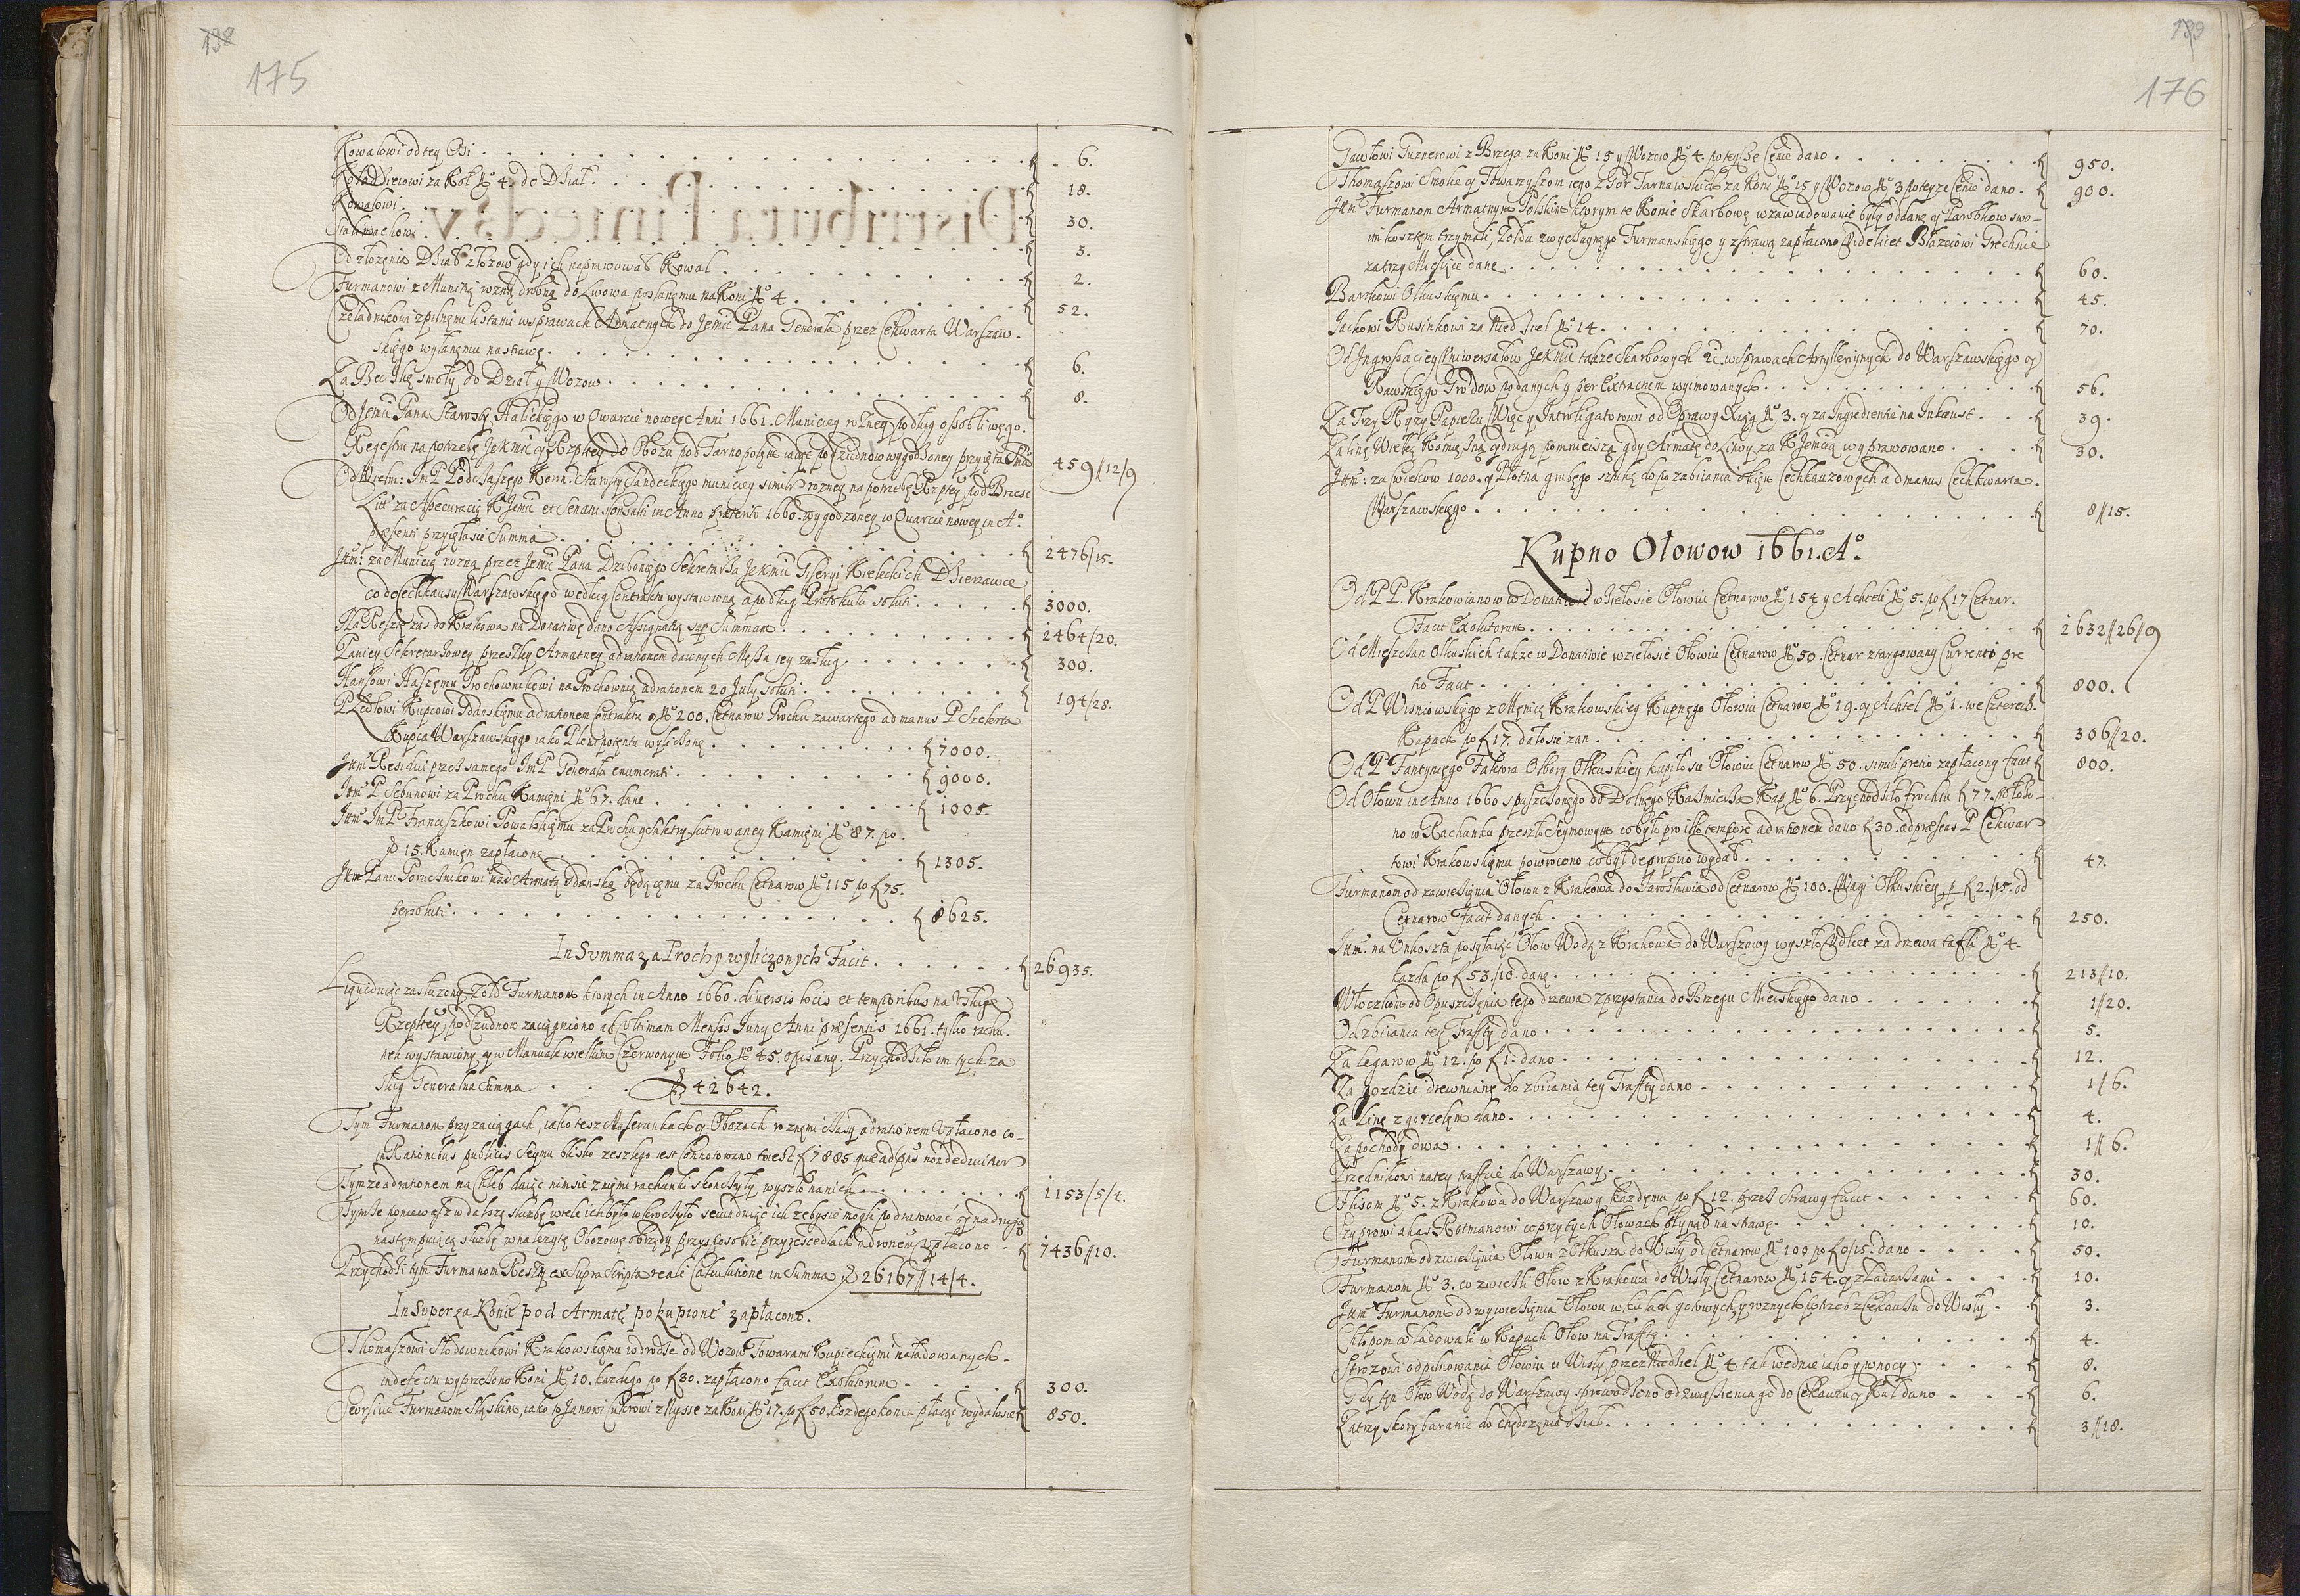 138
175
Kowalowi od tey Osi 6.
Kołodzieiowi za Koł No 4. do Dział 18.
Kowalowi 30.
Stalmachowi 3.
Od złożenia Dział z łozow gdy ich naprawował Kowal 2.
Furmanowi z Municią rozną drobną do Lwowa posłanęmu na Koni No 4 52.
Czeladnikowi z pilnęmi listami w sprawach Armatnych do Jemci Pana Generała przez Cekwarta Warszaw-
skięgo wysłanęmu na strawę 6.
Za Beczkę smoły do Dział y Wozow 8.
Od Jemci Pana Starosty Halickięgo w Qwarcie nowey Anni 1661. Municiey rozney podług osobliwęgo
Regestru na potrzebę JeKMci y Rzptey do Obozu pod Tarnopolęm iako y pod Cudnow wygodzoney przyięta 459/12/9
Od Wielm: JmP Podczaszego Koron. Starosty Sandeckięgo municiey simili rozney na potrzebę Rzptey pod Brzesc
Litt za Assecuracią KJemci et Senatus Consulti in Anno præterito 1660. wygodzoney w Quarcie nowey in Ao
præsenti przyięła się Summa 2476/15.
Ittm: za Municią rozną przez Jemci Pana Dziboniego Sekretarza JeKMci Giserni Kieleckich Dzierzawce
co do Cechhausu Warszawskięgo według Contraktu wystawioną a podług Protokułu soluti 3000.
Na Resztę zas do Krakowa na Donatiwę dano Assignatią sup Summam 2464/20.
Paniey Sekretarzowey przeszłey Armatney ad rationem dawnych Męża iey zasług 300.
Hansowi Haszęmu Prochownikowi na Prochownią ad rationem 20 July soluti 194/28.
P Ledlowi Kupcowi Gdanskięmu ad rationem Contraktu o No 200. Cetnarow Prochu zawartego ad manus P Szekerta
Kupca Warszawskięgo iako Plenipotenta wyliczonę 7000.
Ittm Residui przez samego JmP Generała enumerati 9000.
Ittm P Sebunowi za Prochu Kamięni No 67. danę 1005.
Ittm JmP Franciszkowi Powalskięmu za Prochu y Saletry lutrowaney Kamięni No 87. po
15. Kamięn zapłaconę 1305.
Ittm Panu Porucznikowi nad Armatą Gdanską będącęmu za Prochu Cetnarow No 115 po 75.
persoluti 8625.
In Svmma za Prochy wyliczonych Facit 26935.
Liquiduiąc zasłuzony Zołd Furmanom ktorych in Anno 1660. diversis locis et temporibus na Usługę
Rzeptey pod Cudnow zaciągniono ad Ultimam Mensis Juny Anni præsentis 1661. tylko rachu-
nek wystawiony y w Manuale wielkim Czerwonym Folio No 45. opisany. Przychodziło im tych za
sług Generalna Summa 42642.
Tym Furmanom przy zaciągach, iako tesz Kwserunkach y Obozach roznęmi czasy ad rationem Vpłacono co-
in Rationibus publicis Seymu blisko zeszłego iest Connotowano to iest 7885 que ad pns non deducitur
Tymze ad rationem na Chleb daiąc nim sie z nięmi rachunki skonczyły, wyszło na nich 1153/5/4.
Tymze poniewasz w dalszą słuzbę wiele ich było wkroczyło secunduiąc ich zebysie mogli podratować y na drugą
następuiącą słuzbę w nalezytę Obozowę obrzędy przysposobić przyiescediach ad ronem Vpłacono 7436//10.
Przychodzi tym Furmanom Reszty ex Supra Scripta reali Calculatione in Summa 26167//14/4.
In Svper za Konie pod Armatę pokupionę zapłacono.
Thomaszowi Słodownikowi Krakowskięmu w drodze od Wozow Towarami Kupieckięmi naładowanych
in defectu wyprzezono Koni No 10. kazdego po 30. zapłacono facit Exolutorum 300.
Georsiue Furmanom Sląskim, iako to Janowi Cukrowi z Nysse za Koni No 17. po 50. kozdego konia płacąc wydało się 850.
139
176
Gawłowi Guznerowi z Brzega za Koni No 15 y Wozow No 4. po teyze Cenie dano 950.
Thomaszowi Smolce y Towarzyszom iego z Gor Tarnawskich za Koni No 15 y Wozow No 3 po teyze Cenie dano 900.
Ittm Furmanom Armatnym Polskim ktorym te Konie Skarbowę w zawiadowanie były oddanę y Parobkow swo-
im kosztęm trzymali, Zołdu zwyczaynęgo Furmanskięgo y z strawą zapłacono Videlicet Błazeiowi Grechucie
za trzy Miesiące danę 60.
Bartkowi Olkuskięmu 45.
Jackowi Rusinkowi za Niedziel No 14 70.
Od Ingrossaciey Uniwersałow JeKMci takze Skarbowych etc. w sprawach Artylleriynych do Warszawskięgo y
Rawskięgo Grodow podanych y per Extractum wyimowanych 56.
Za Trzy Ryzy Papieru Więc y Introligatorowi od Oprawy Xiąg No 3. y za Ingredientia na Inkaust 39.
Za linę Wielką Kamięnną y drugą pomnieiszą gdy Armatę do Litwy za KJemcią wyprawowano 30.
Ittm: za Cwiekow 1000. y Płotna grubego sztukę do pozabiiania okięn Cechhauzowych ad manus Cechkwarta
Warszawskięgo 8//15.
Kupno Ołowow 1661. Ao.
Od PP. Krakowianow w Donatiwie wzieło sie Ołowiu Cetnarow No 154 y Achteli No 5. po 17 Cetnar.
Facit Exolutorum 2632//26/9
Od Mieszczan Olkuskich takze w Donatiwie wzieło sie Ołowiu Cetnarow No 50. Cetnar ztargowany Currenti pre
tio Facit 800.
Od P Wisniowskięgo z Męnice Krakowskiey Kupnęgo Ołowiu Cetnarow No 19. y Achtel No 1. we Czterech
Kapach po 17. dało sie zan 306//20.
Od P Fantynięgo Faktora Olbory Olkuskiey kupiło sie Ołowiu Cetnarow No 50. simili pretio zapłacony facit 800.
Od Ołowu in Anno 1660 spuszczonęgo do Dolnęgo Kazmierza Kap No 6. Przychodziło frochtu 77. położo-
no w Rachunku przeszło Seymowym co było pro illo tempore ad rationem dano 30. ad præsens P Cekwar
towi Krakowskięmu powrocono co był de proprio wydał 47.
Furmanom od zawiezięnia Ołowu z Krakowa do Jarosławia od Cetnarow No 100. Wagi Olkuskiey p 2./15. od
Cetnarow Facit danych 250.
Ittm. na Unkoszta posyłaiąc Ołow Wodą z Krakowa do Warszawy wyszło Vidlicet za drzewa tafli No 4.
kazda po 53./10. danę 213/10.
Włoczkom od Opuszczęnia tego drzewa z przystania do Brzegu Mieiskięgo dano 1//20.
Od zbiiania tey Trafty dano 5.
Za Legarow No 12. po 1. dano 12.
Za Gozdzie drewnianę do zbiiania tey Traffty dano 1/6.
Za Linę z gorcelęm dano 4.
Za pochody dwa 1//6.
Przednikowi na tey trafcie do Warszawy 30.
Flisom No 5. z Krakowa do Warszawy kazdęmu po 12. przez Strawy facit 60.
Szyprowi alias Rotmanowi co przy tych Ołowach płynął na strawę 10.
Furmanom od zwiezięnia Ołowu z Olkusza do Wisły od Cetnarow No 100 po 0/15. dano 50.
Furmanom No 3. co zwiezli Ołow z Krakowa do Wisły Cetnarow No 154. y z ładarzami 10.
Ittm Furmanom od wywiezięnia Ołowu w kulach gotowych, y roznych potrzeb z Cekauzu do Wisły 3.
Chłopom co ładowali w Kapach Ołow na Traffte 4.
Strozowi od pilnowania Ołowiu u Wisły przez Niedziel No 4. tak w ednie iako y w nocy 8.
Gdy tęn Ołow Wodą do Warszawy sprowadzono od zwiezienia go do Cekauzu y Kul dano 6.
Za trzy skory baranie do chędozęnia dział 3//18.